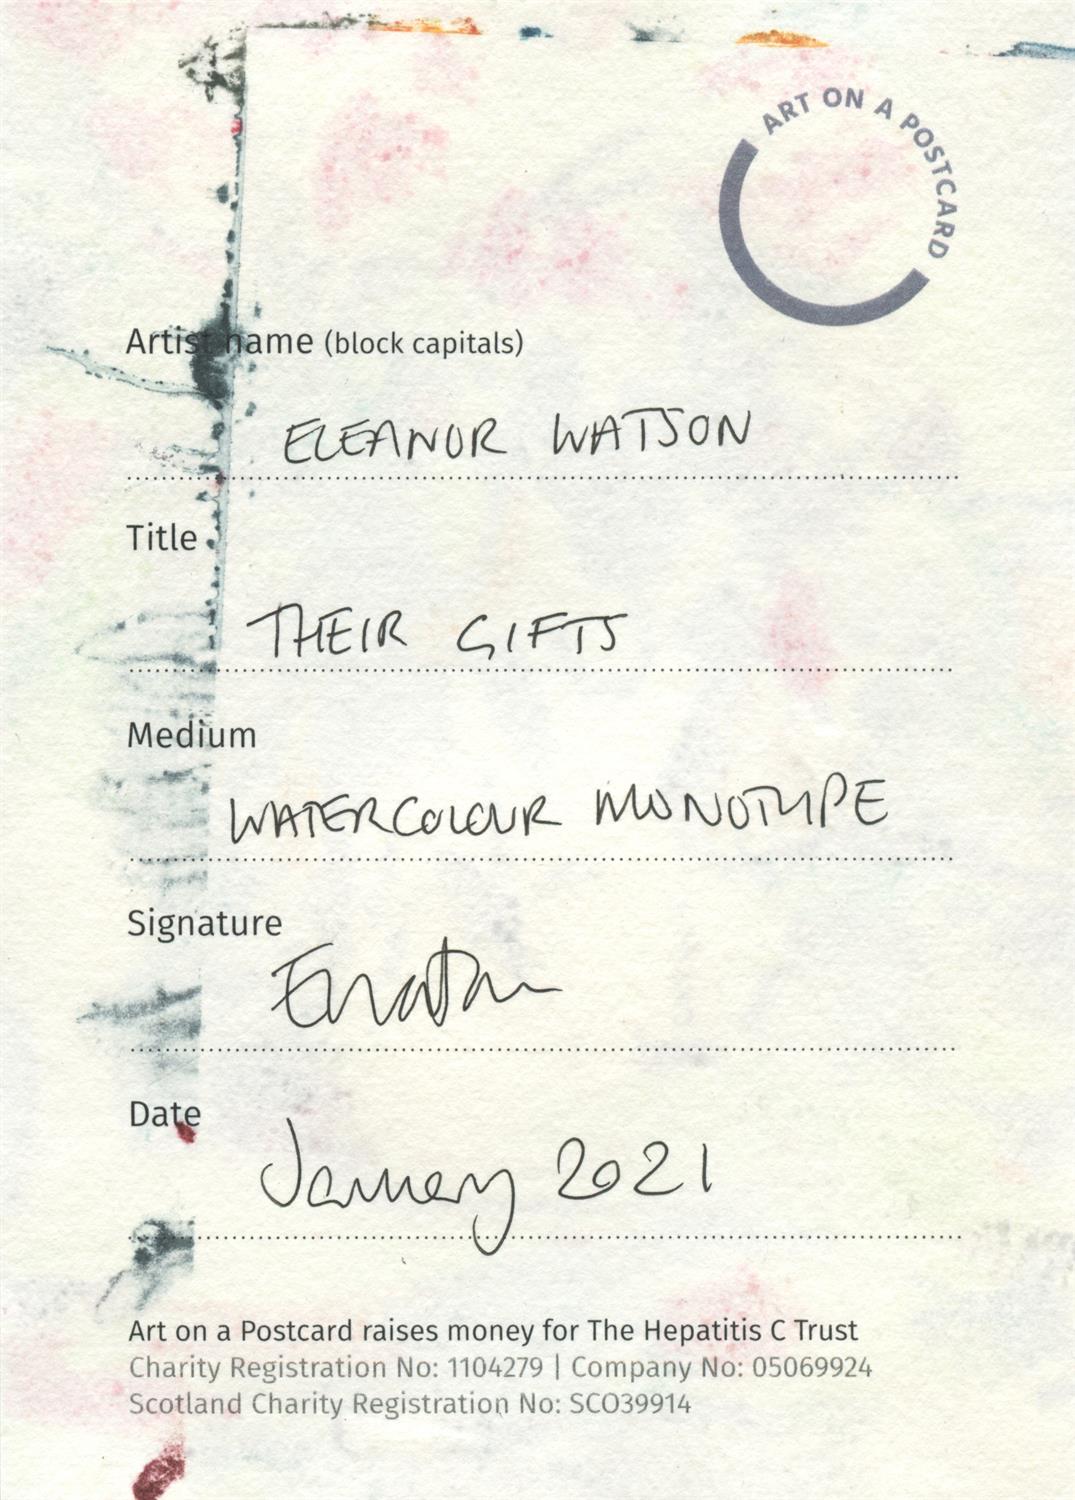 ART ON A POSTCARD
Artist name (block capitals)
ELEANOR WATSON
Title
THEIR GIFTS
Medium
WATERCOLOUR MONOTYPE
Signature
EWatson
Date
January 2021
Art on a Postcard raises money for The Hepatitis C Trust
Charity Registration No: 1104279 | Company No: 05069924
Scotland Charity Registration No: SCO39914